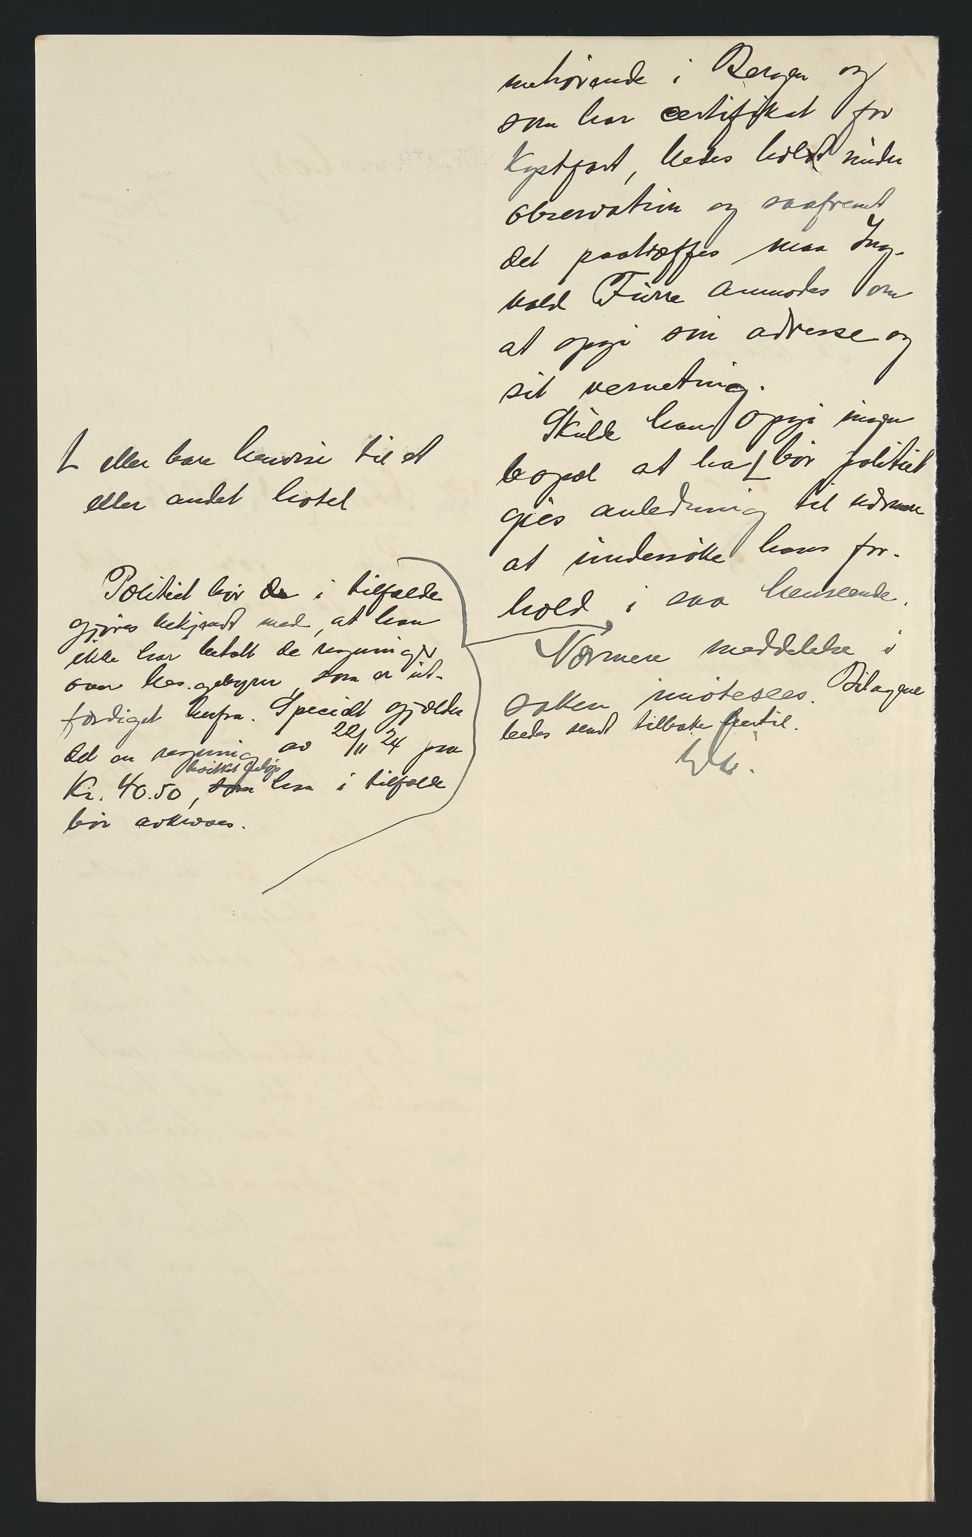 mehørende i Bergen og
som har certifikat for
Kystfart, bedes holdt under
observation og saafremt
det paatræffes maa Ing-
vald Furre anmodes om
at opgi sin adresse og
sit verneting.
Skulde han opgi ingen
bopæl at ha ⌊ bør politiet
gies anledning til nærmere
at undersøke hans for-
hold i saa henseende.
Nærmere meddelelse i
saken imøtesees. Bilagene
bedes sendt tilbake hertil.
⌊ eller bare henvise til et
eller andet hotel
Politiet bør i tilfælde
gjøres bekjendt med, at han
ikke har betalt de regninger
over bes. gebyrer som er ut-
færdiget herfra. Specielt gjælder
det en regning av 22/11 24 paa
Kr. 40.50, som hvilket beløp han i tilfælde
bør avkræves.